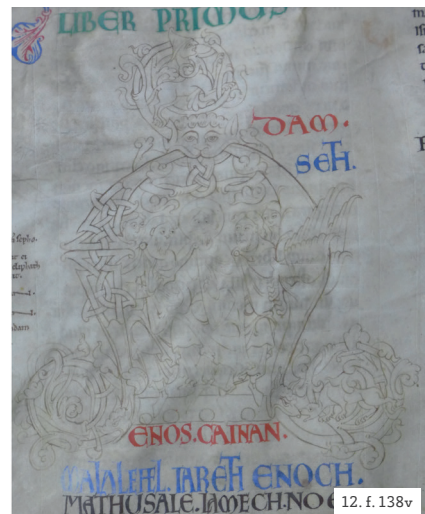 LIBER PRIMUS
DAM.
SETH.
ENOS. CAINAN.
MALALEHEL. IARETH ENOCH.
MATHUSALE. LAMECH. NO
12. f. 138v